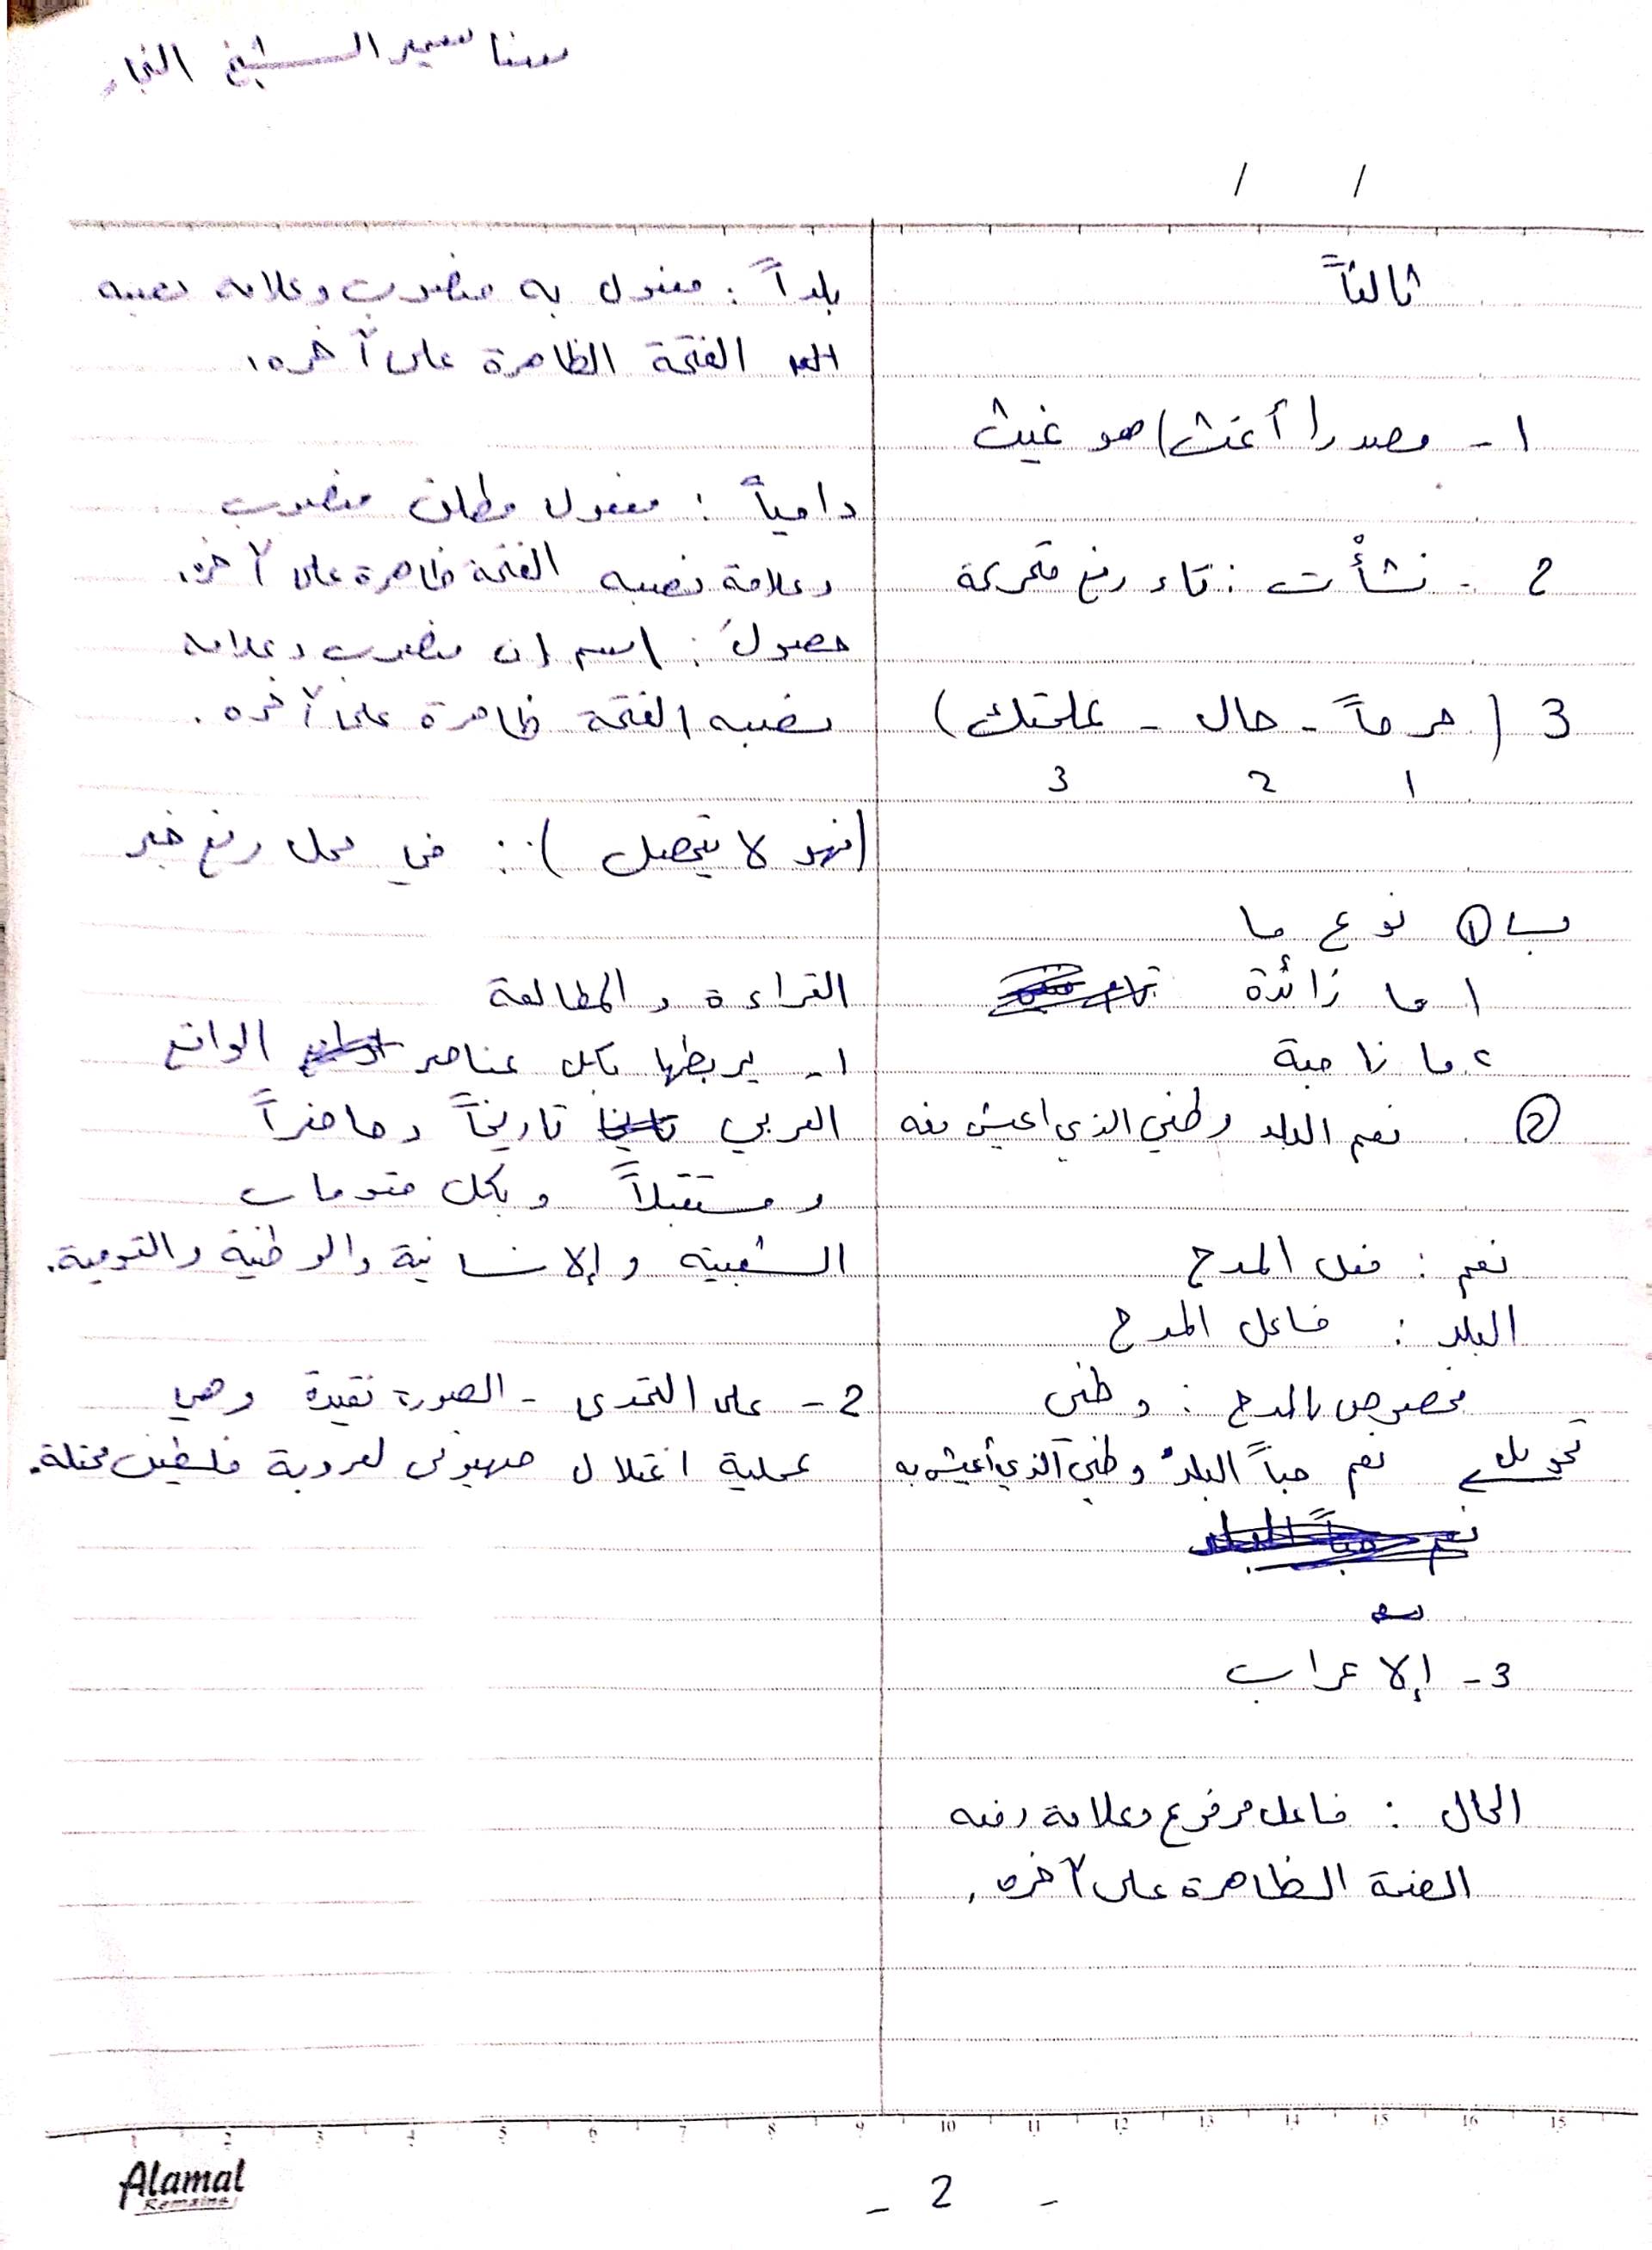 سنا سمير الشيخ النجار
/ /
ثالثاً
1- مصدر (أغث) هو غيث
2- نشأت : تاء رفع متحركة
3 (حرماً - حال - علمتك)
1 2 3
ب ① نوع ما
1 ما زائدة
2 ما ناهية
② نعم البلد وطني الذي اعيش فيه
نعم : فعل المدح
البلد : فاعل المدح
مخصوص بالمدح : وطني
تحويل نعم حباً البلدُ وطني الذي أعيش به
3- الإعراب
الحال : فاعل مرفوع وعلامة رفعه
الضمة الظاهرة على آخره.
بلداً : مفعول به منصوب وعلامة نصبه
الفتحة الظاهرة على آخره.
دامياً : مفعول مطلق منصوب
وعلامة نصبه الفتحة ظاهرة على آخره.
حصولَ : اسم إن منصوب وعلامة
نصبه الفتحة ظاهرة على آخره.
(فهو لا يتحصل) : في محل رفع خبر
القراءة والمطالعة
1- يربطها بكل عناصر الواقع
العربي تاريخاً وحاضراً
ومستقبلاً وبكل مقومات
الشعبية والإنسانية والوطنية والقومية.
2- على التحدى - الصورة نقيدة وهي
عملية اغتلال صهيونى لعروبة فلسطين محتلة.
Alamal
Remains
- 2 -